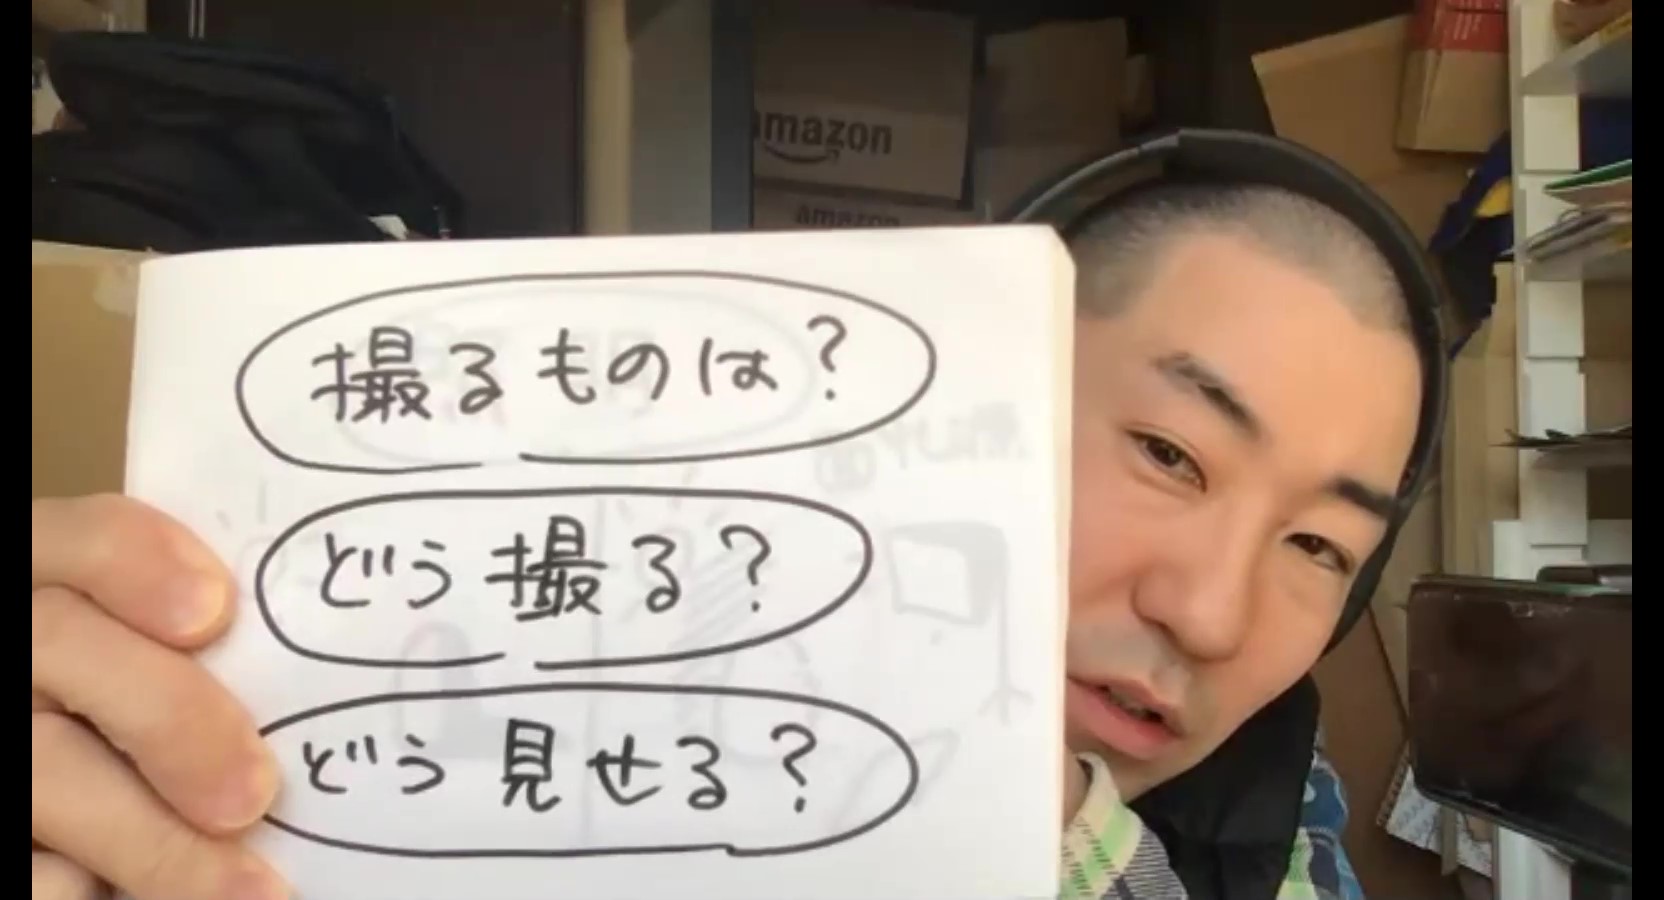 amazon
amazon
撮るものは?
どう撮る?
どう見せる?